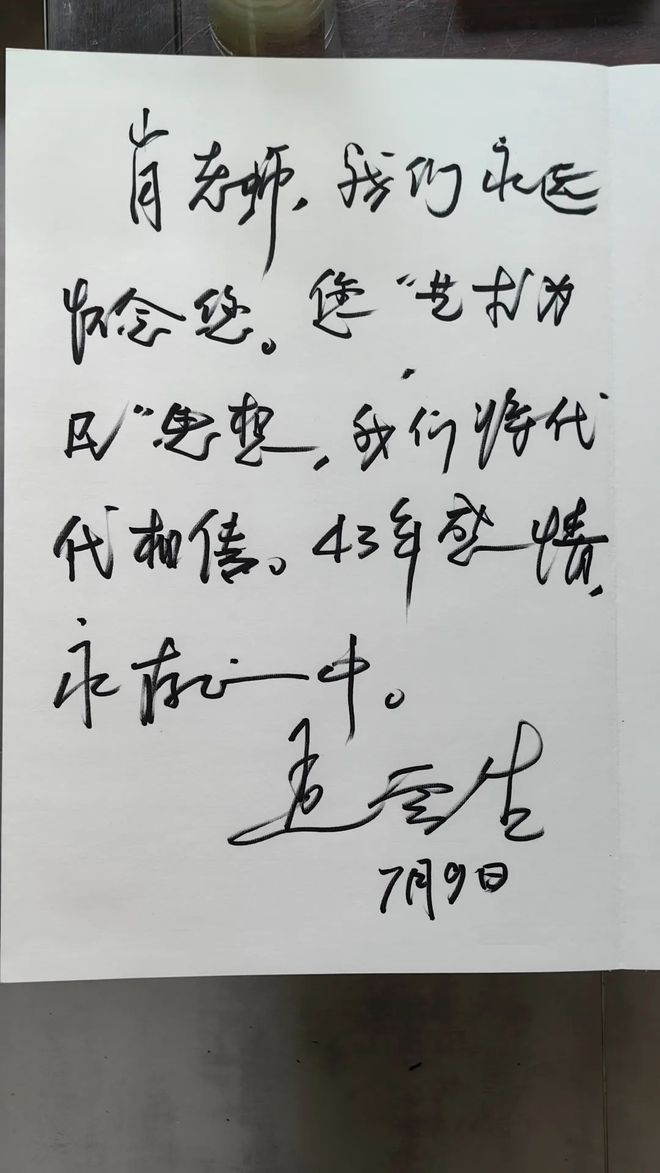 肖老师，我们永远
怀念您。您“艺术为
民”思想，我们将代
代相传。43年感情，
永存心中。
孟云生
7月9日